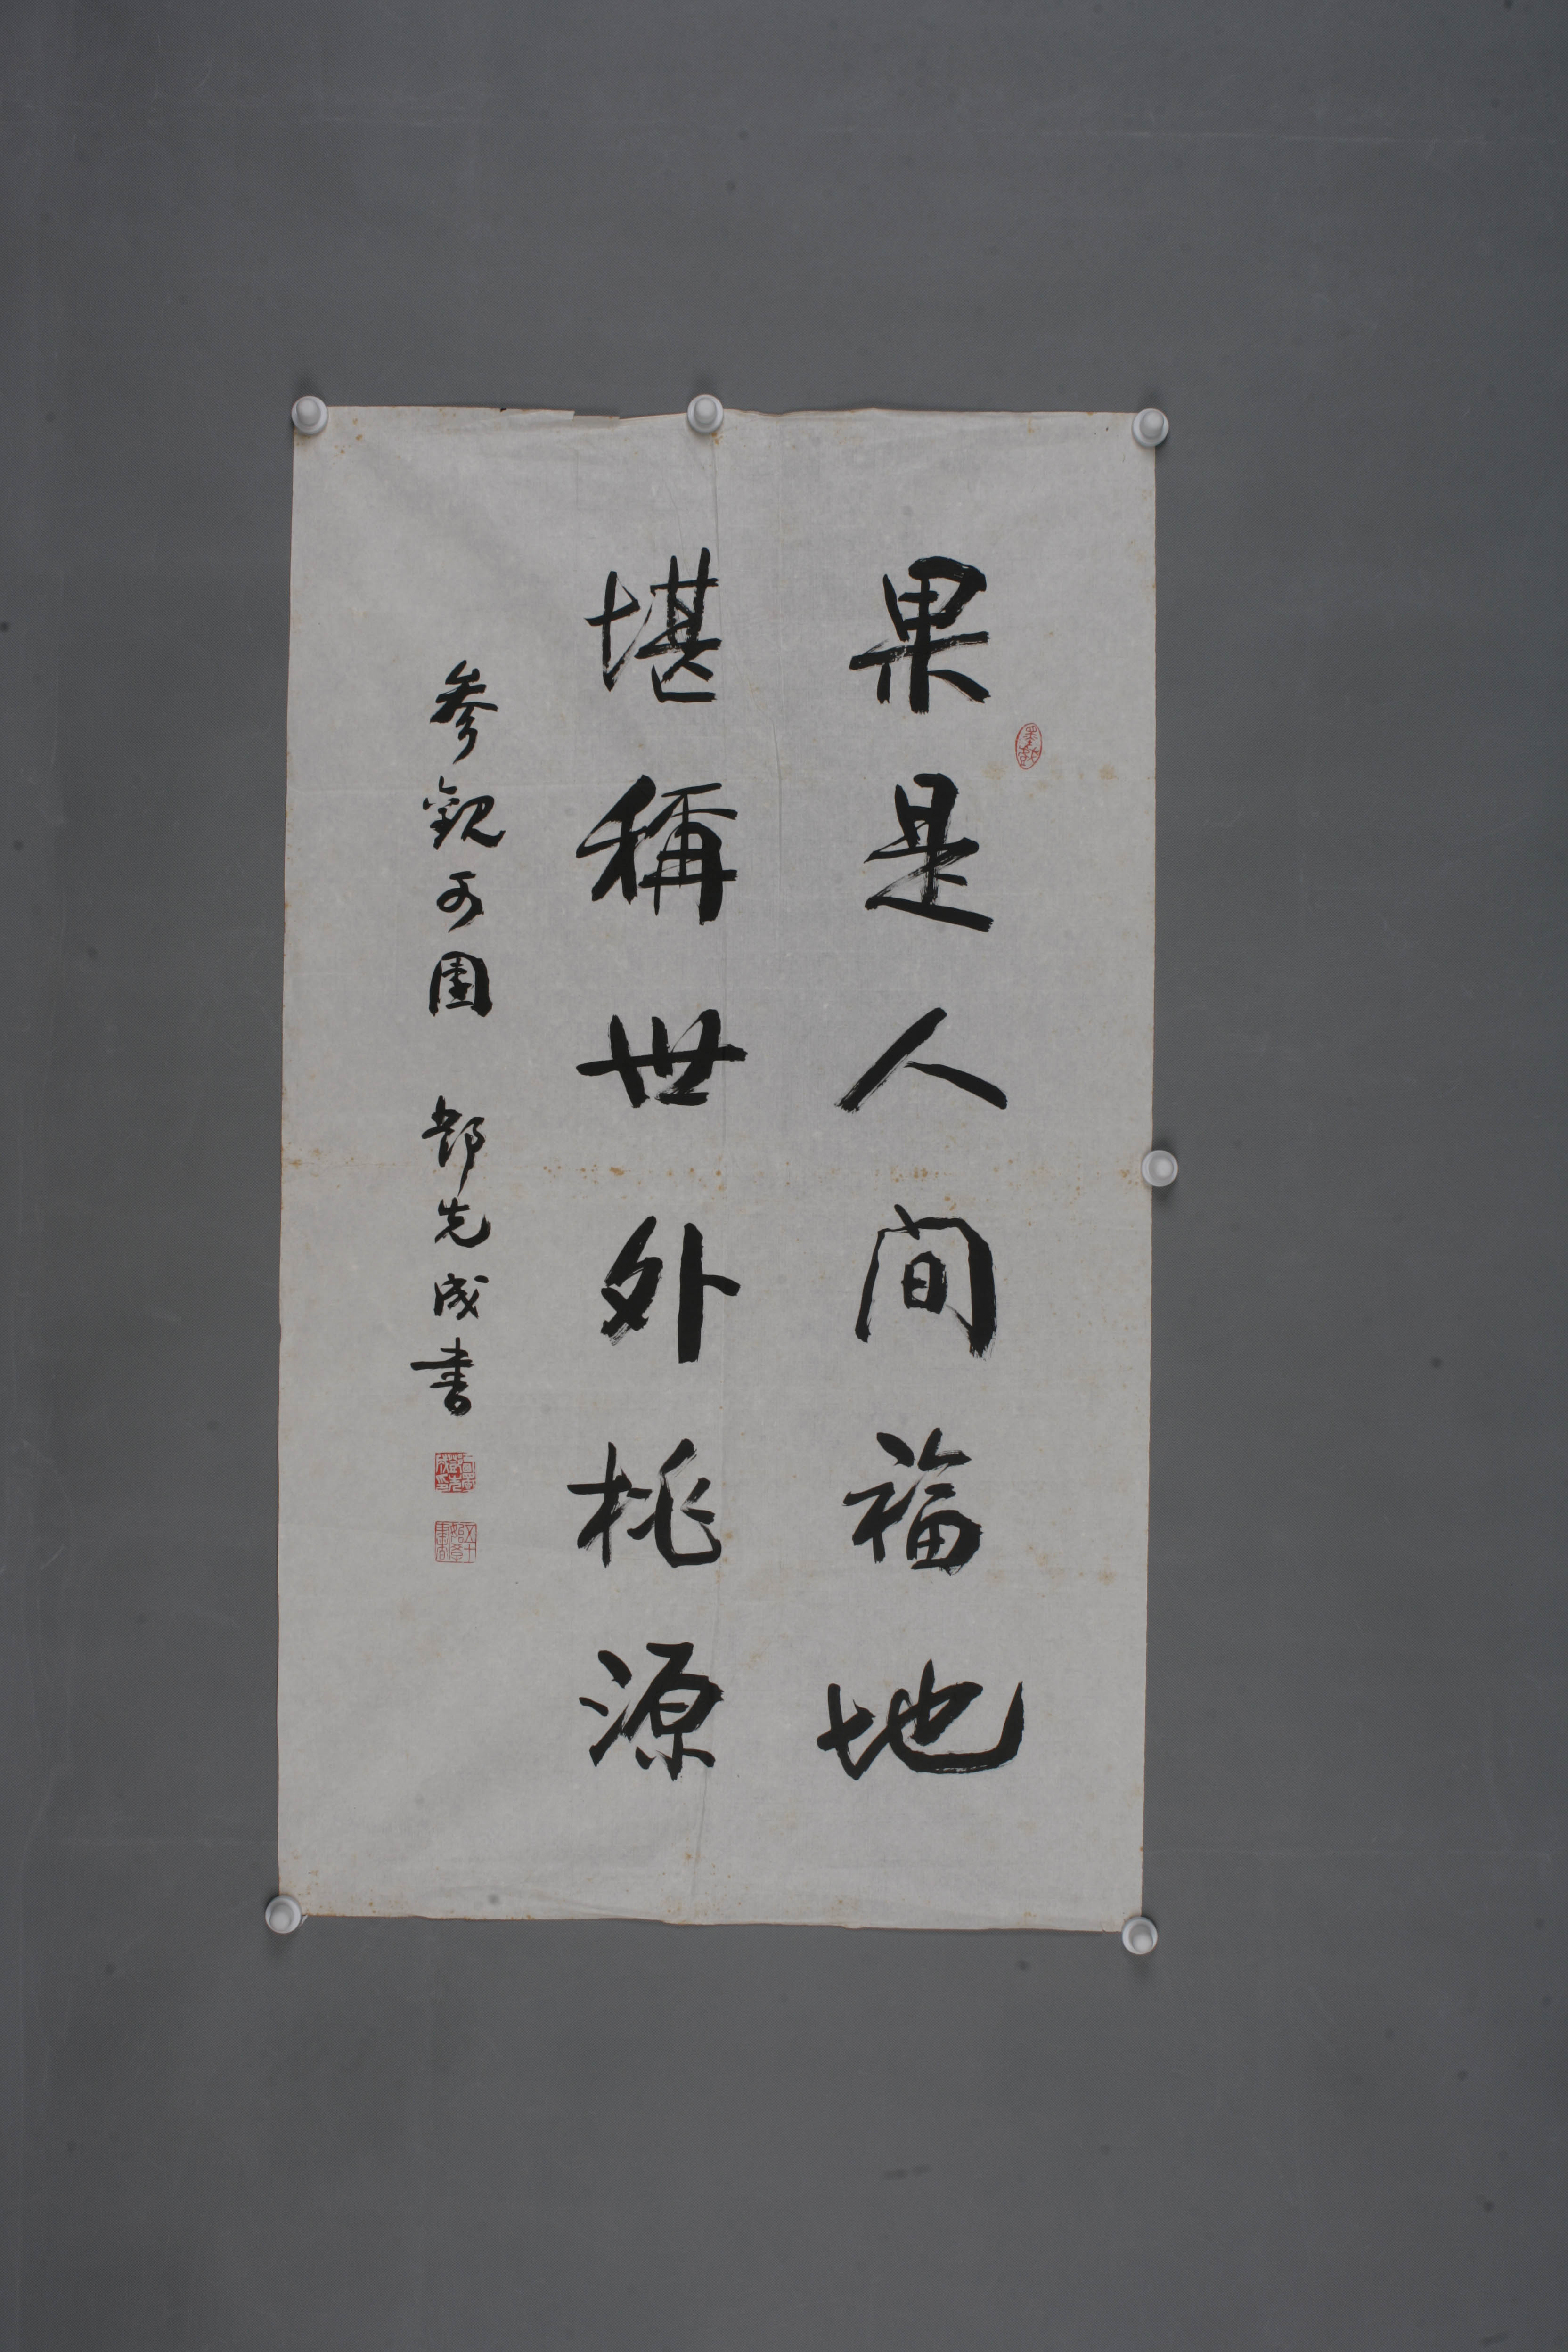 果是人间福地
堪稱世外桃源
参觀可園 鄧先成书